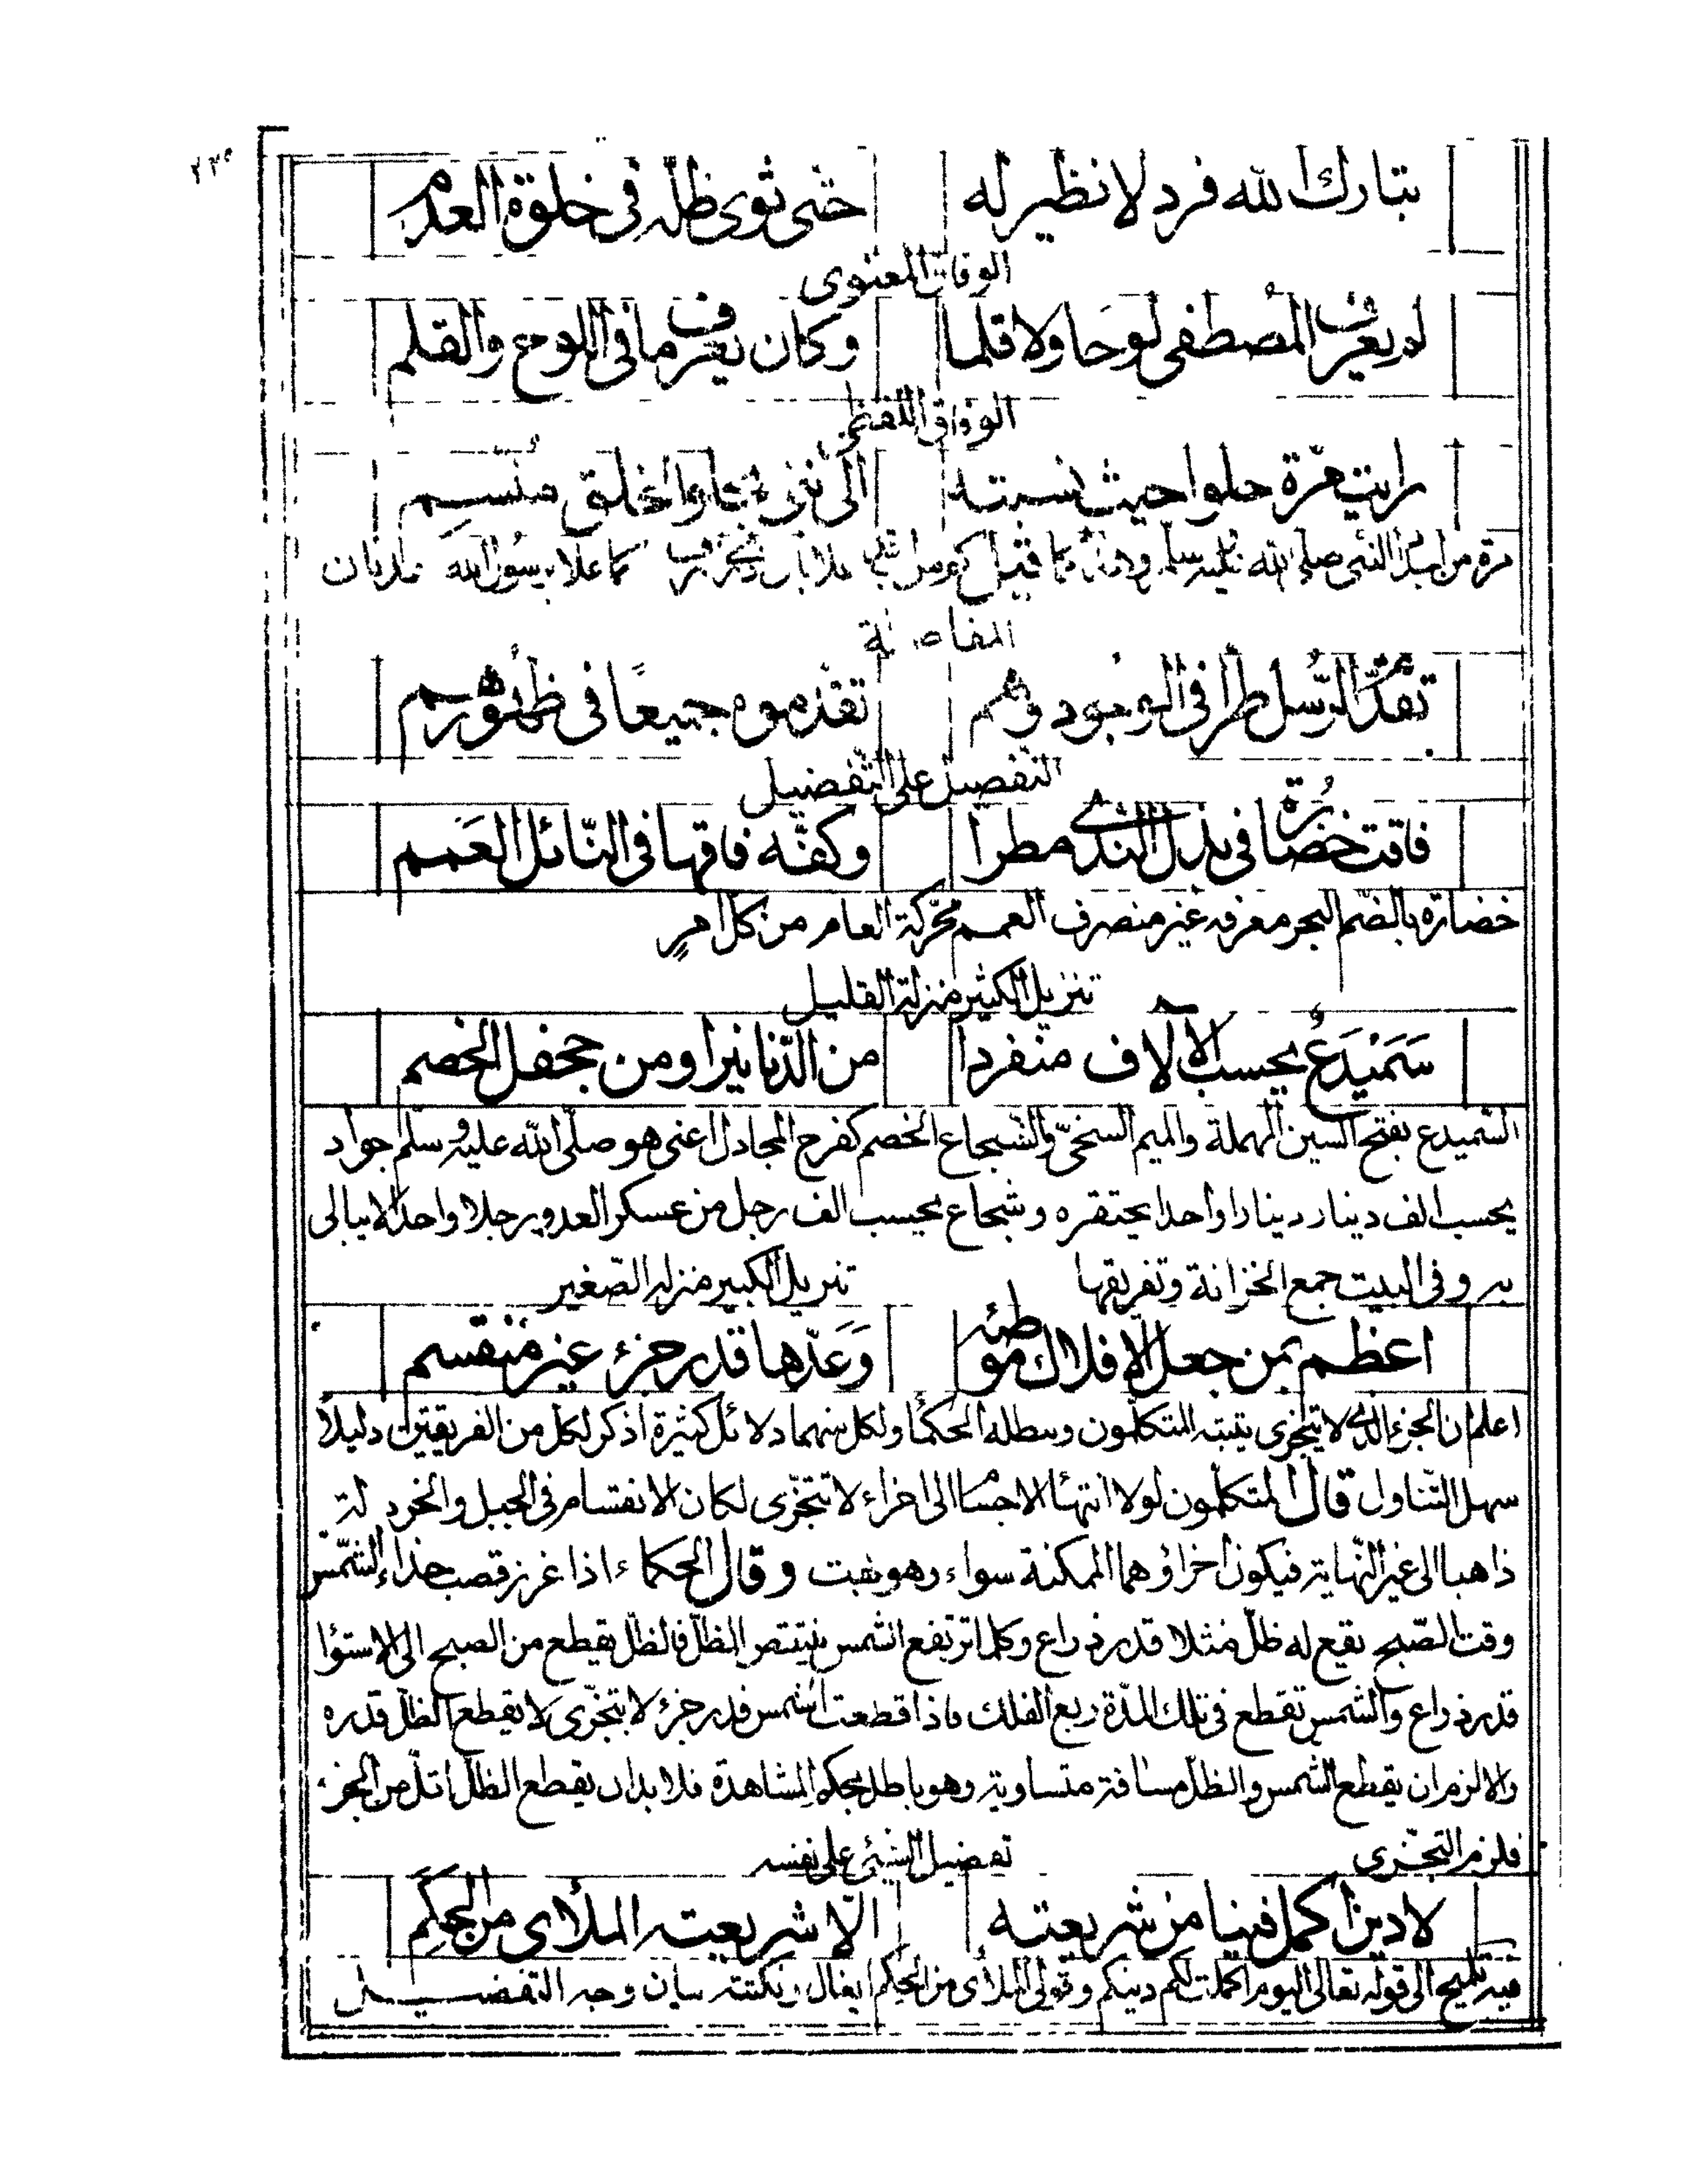 تبارك الله فرد لا نظير له حتى ثوى ظله في خلوة العدم
الوفاق المعنوى
لم يعرف المصطفى لوحا ولا قلما وكان يعرف ما فى اللوح والقلم
الوفاق اللفظى
رايت مرة حلوا حيث نسبته الى
مرة من اجداد النبي صلى الله عليه وسلم كما علا برسول الله عدنان
تقدم الرسل طرا فى الوجود وهم تقدموه جميعًا فى ظهورهم
التفضيل على التفضيل
فاقت خضارة فى بذل الندى مطرا وكفّه فاقها فى النّائل العَمم
خضارة بالضم البحر معرفه غير منصرف العمم محركة العام من كل امر
تنزيل الكثير منزلة القليل
سَمَيْدَعٌ يحسب الآلاف منفردا من الدّنانير او من جحفل الخصم
السّميدع بفتح السين المهملة والميم السخىّ والشجاع الخصم كفرح المجادل اعنى هو صلى الله عليه وسلم جواد
يحسب الف دينار دينارا واحدا يحتقره وشجاع يحسب الف رجل من عسكر العدو رجلا واحدا لا يبالى
به وفى البيت جمع الخزانة وتفريقها تنزيل الكبير منزلة الصّغير
اعظم بمن جعل الافلاك موطئه وَعَدّها قدر جزء غير منقسم
اعلم ان الجزء الذى لا يتجزى يثبته المتكلّمون ويبطله الحكماء ولكل منهما دلائل كثيرة اذكر لكل من الفريقين دليلاً
سهل التّناول قال المتكلّمون لولا انتهاء الاجسام الى اجزاء لا تتجزّى لكان الانقسام فى الجبل والخردلة
ذاهبا الى غير النّهاية فيكون اجزاؤهما الممكنة سواء وهو بهت وقال الحكماء اذا غرز قصب حذاء الشّمس
وقت الصّبح يقع له ظلّ مثلا قدر ذراع وكلما ترتفع الشمس ينتقص الظلّ فالظلّ يقطع من الصبح الى الاستواء
قدر ذراع والشمس تقطع فى تلك المدّة ربع الفلك فاذا قطعت الشمس قدر جزء لا يتجزّى لا يقطع الظلّ قدره
والا لزم ان يقطع الشمس والظلّ مسافة متساوية وهو باطل بحكم المشاهدة فلا بد ان يقطع الظلّ اقلّ من الجزء
فلزم التجزى تفضيل الشئ على نفسه
لا دين اكمل فينا من شريعته الّا شريعته الملأى من الحِكَمِ
فيه تلميح الى قوله تعالى اليوم اكملت لكم دينكم وقولى الملأى من الحكم ايغال ونكتته بيان وجه التفضيل